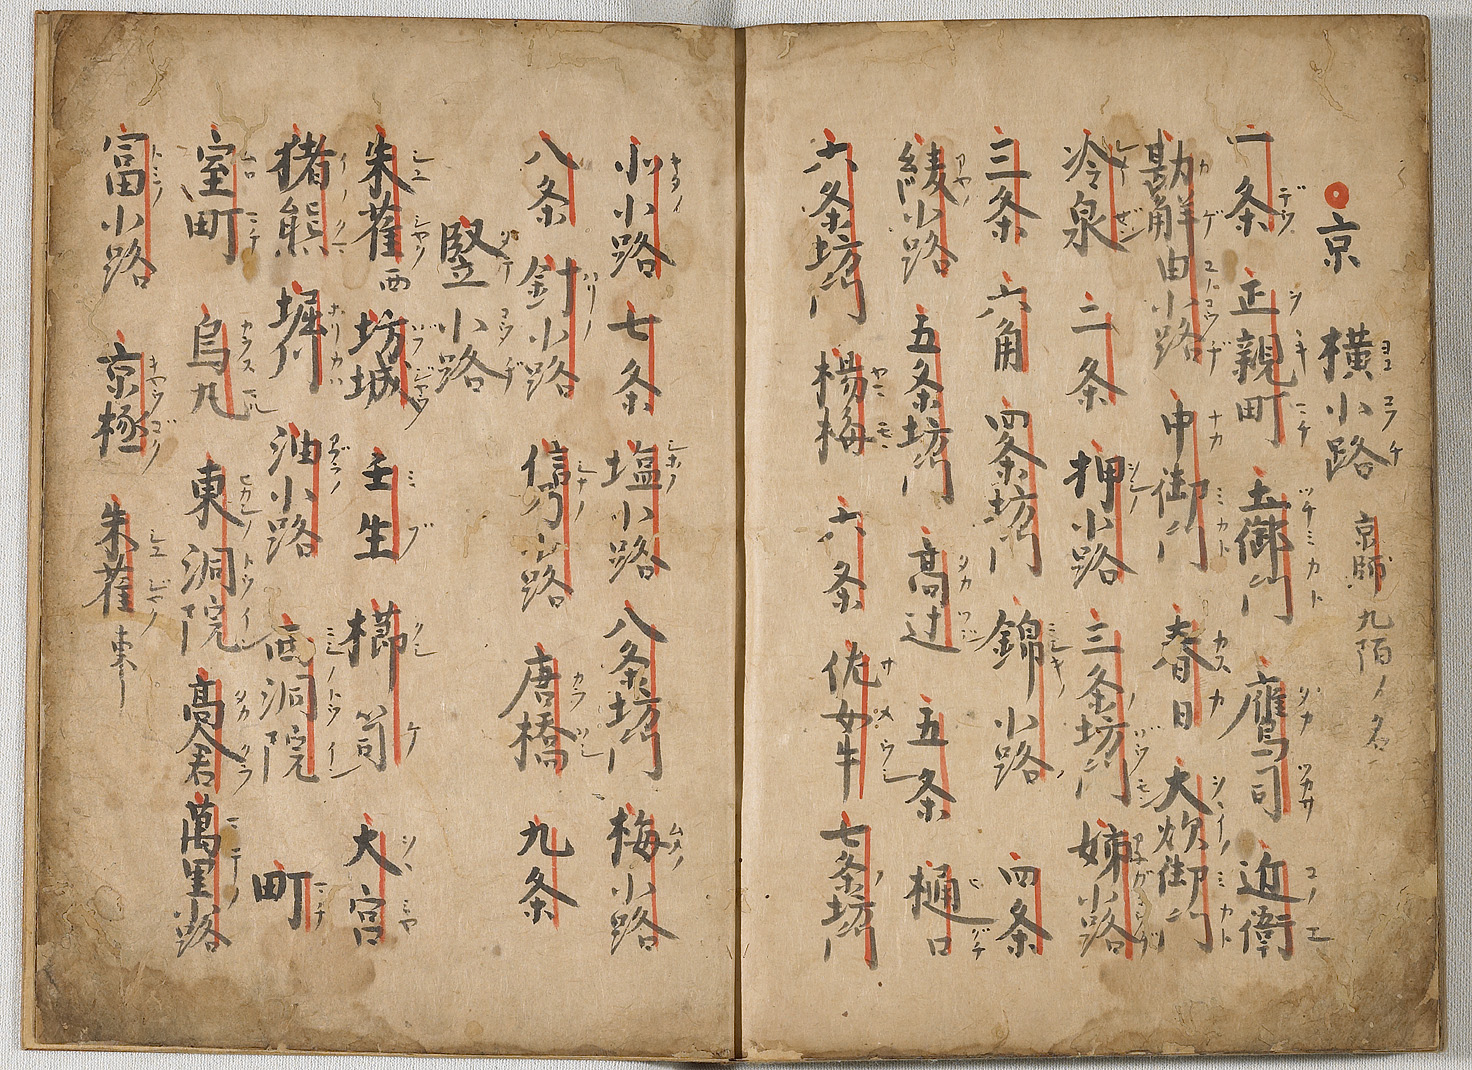 京 横小路 京師九陌ノ名
一条 正親町 土御門 鷹司 近衛
勘解由小路 中御門 春日 大炊御門
冷泉 二条 押小路 三条坊門 姉小路
三条 六角 四条坊門 錦小路 四条
綾小路 五条坊門 高辻 五条 樋口
六条坊門 楊梅 六条 佐女牛 七条坊門
北小路 七条 塩小路 八条坊門 梅小路
八条 針小路 信乃小路 唐橋 九条
竪小路
朱雀西 坊城 壬生 櫛笥 大宮
猪熊 堀川 油小路 西洞院 町
室町 烏丸 東洞院 高倉 萬里小路
富小路 京極 朱雀東